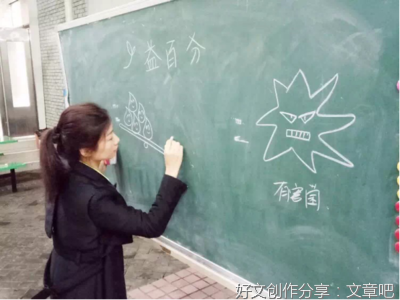 益百分
有害菌
好文创作分享：文章吧